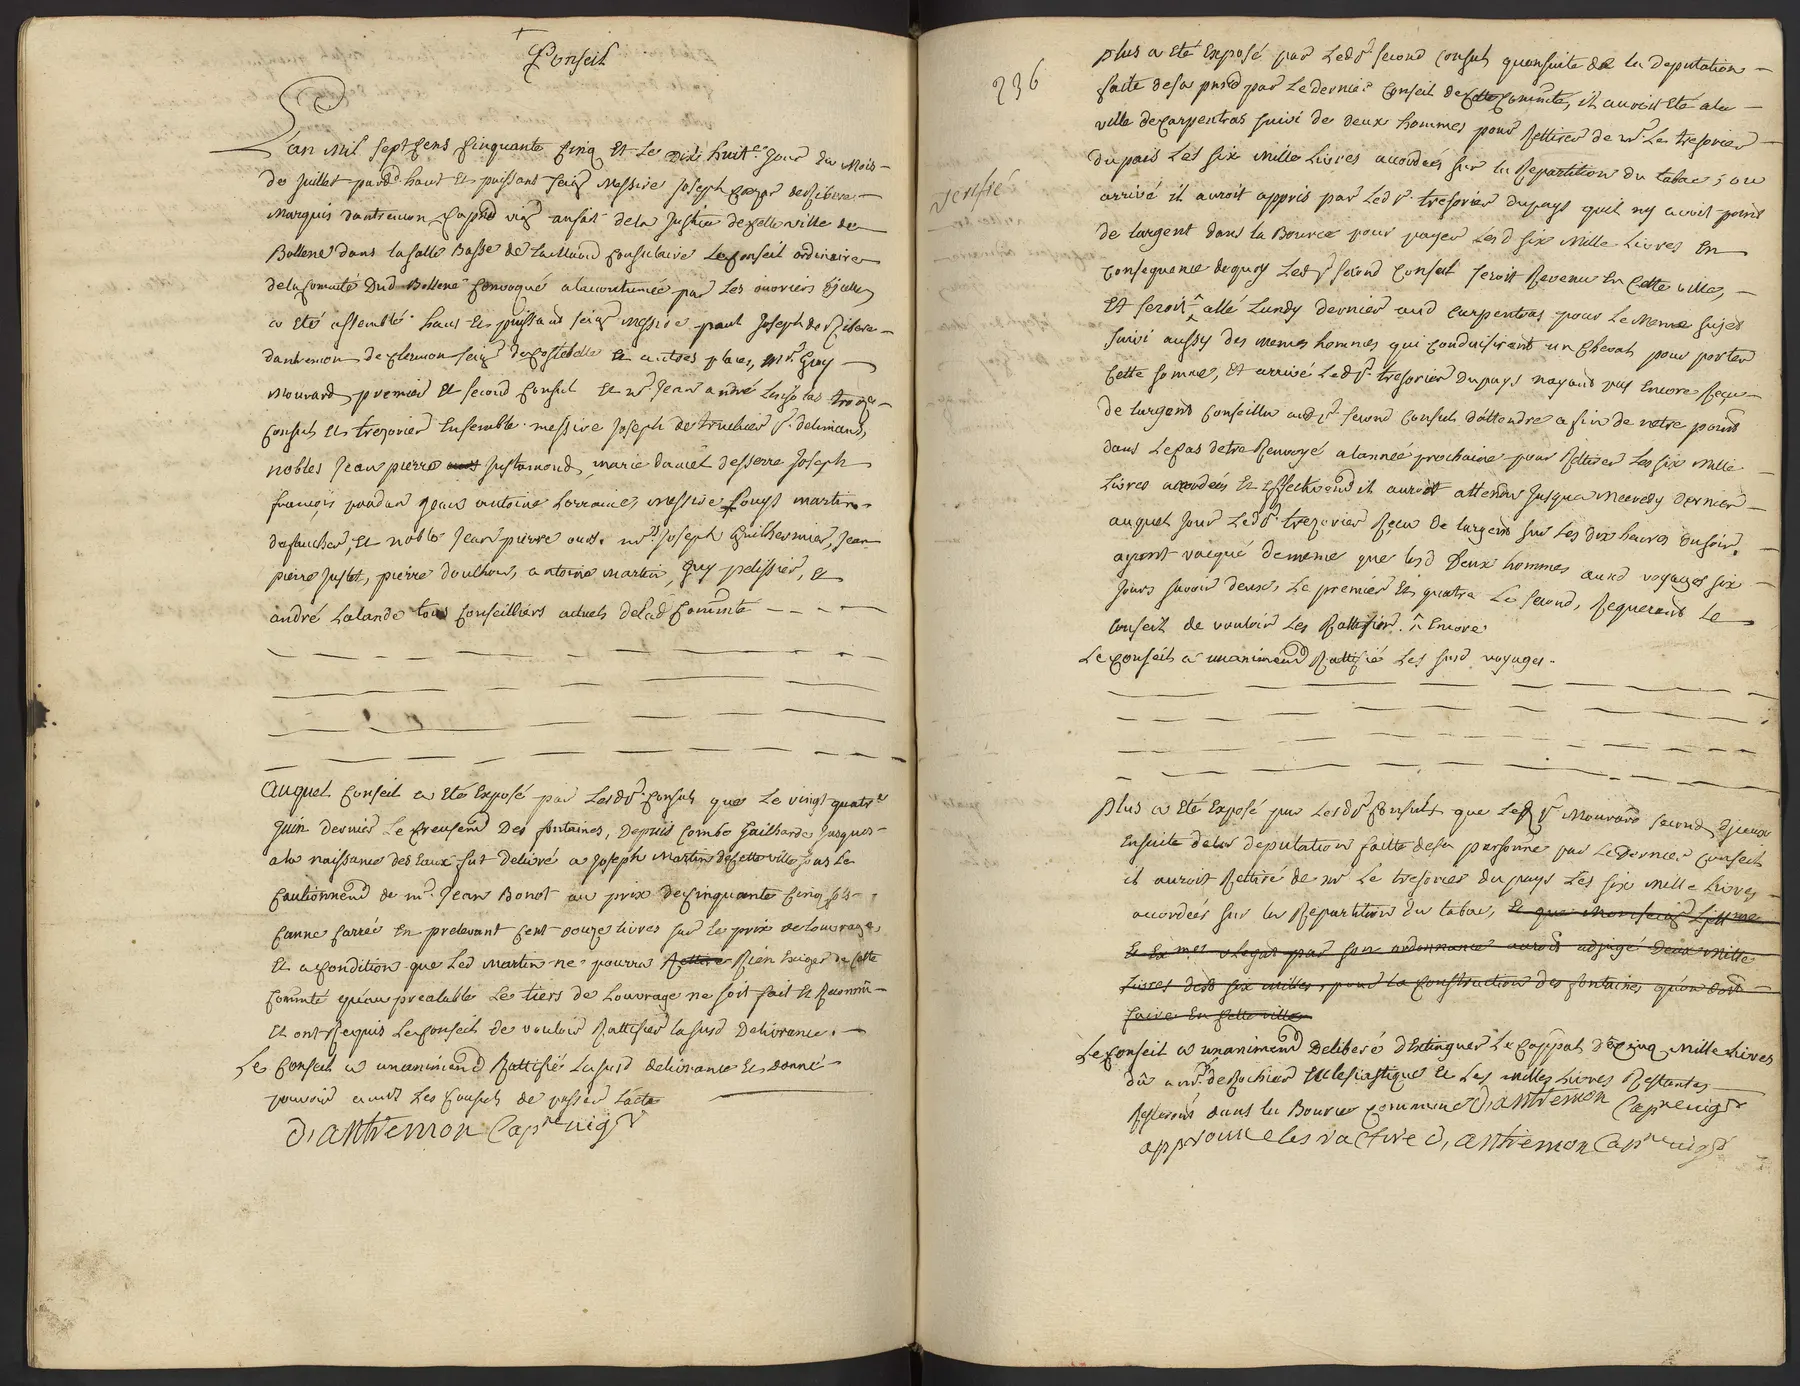 Conseil
L'an mil sept cens cinquante cinq et le dix huit.e jour du mois
de juillet pard.t haut et puissant seig.r messire joseph de Ribere
Marquis dantremon cap.ne vig.r ausit de la justice de cette ville de
Bollene dans la salle basse de la maison consulaire le conseil ordinaire
de la com.te dud Bollene convoqué a lacoutumée par les ouvriers
a eté assemblé haut et puissant seig.r messire paul joseph de Ribere
dantremon de clermon seig.r de costebelle et autres places, m.r Guy
Mourard premier et second consul et m.r jean andré troiz.e
consul et trezorier ensemble messire joseph de truchier s.r de limans,
nobles jean pierre justamond, marie daniel desserre joseph
françois jean antoine Lorraine, messire Louys martin
defaucher, et noble jean pierre m.rs joseph Guilhermier, jean
pierre justet, pierre doulhon, antoine martin, Guy pelissier, et
andré Lalande tous conseilliers actuels delad comm.té
Auquel conseil a eté exposé par lesd s.rs consuls que le vingt quatr.e
juin dernier le creusem.t des fontaines, depuis combe Gailharde jusques
a la naissance des eaux fut delivré a joseph Martin de cette ville sous le
cautionnem.t de m.r jean Bonot au prix de cinquante cinq s. la
canne carrée en prelevant cent douze livres sur le prix de louvrage,
et a condition que led martin ne pourra Rettirer Rien exiger de cette
com.té qu'au prealable le tiers de louvrage ne soit fait et Reconnu
et ont Requis le conseil de vouloir Rattifier la susd delivrance.
Le conseil a unanimem.t Rattifié la susd delivrance et donné
pouvoir aud les consuls de passer lacte
d'antremon cap.ne vig.r
236
verifié
plus a eté exposé par led s.r second consul quensuite de la deputation
faite de sa pers.ne par le dernier conseil de cette com.té, il auroit eté a la
ville de carpentras suivi de deux hommes pour Rettirer de m.r le tresorier
du pais les six mille livres accordées sur la Repartition du tabac, ou
arrivé il auroit appris par led s.r tresorier du pays quil ny avoit point
de largent dans la Bource pour payer lesd six mille livres en
consequence dequoy led s.r second consul seroit Revenu en cette ville,
et seroit ^ allé Lundy dernier aud carpentras pour le meme sujet
suivi aussy des memes hommes qui conduisirent un cheval pour porter
cette somme, et arrivé led s.r tresorier du pays nayant pas encore Reçu
de largent conseilla aud s.r second consul dattendre afin de netre point
dans le cas detre Renvoyé a lannée prochaine pour Rettirer les six mille
livres accordées et effectivem.t il auroit attendu jusqua mecredy dernier
auquel jour led s.r trezorier Reçu de largent sur les dix heures du soir,
ayant vacqué de meme que lesd deux hommes aud voyages six
jours savoir deux, le premier et quatre le second, Requerant le
conseil de vouloir les Rattifier. ^ encore
Le conseil a unanimem.t Rattifié les susd voyages.
plus a eté exposé par lesd s.rs consuls que led s.r Mourard second d'jceux
ensuite de la deputation faitte de sa personne par le dernier conseil
il auroit Rettiré de m.r le tresorier du pays les six mille livres
accordées sur la Repartition du tabac, et que monseig.r jll.me
et ex.me vlegat par son ordonnance auroit adjugé deux mille
livres desd six milles, pour la construction des fontaines, qu'on doit
faire en cette ville
Le conseil a unanimem.t deliberé d'Extinguer le cappat de cinq mille livres
dû a m.r de Rochier Ecclesiastique et les milles livres Restantes
dans la Bource commune d'antremon cap.ne vig.r
approuve les rature d'antremon cap.ne vig.r